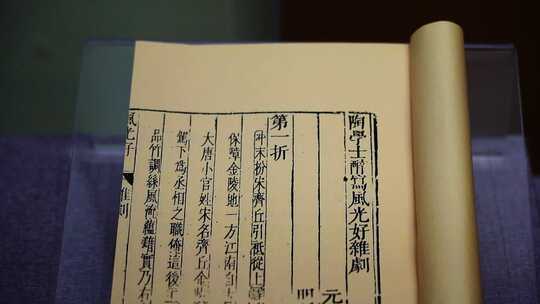 陶學士醉寫風光好雜劇
元
第一折
冲末扮宋齊丘引祗從上
保障金陵地一方江南
大唐小官姓宋名齊丘
駕下為丞相之職俺這後
品竹調絲風流蘊藉
風光好
雜劇